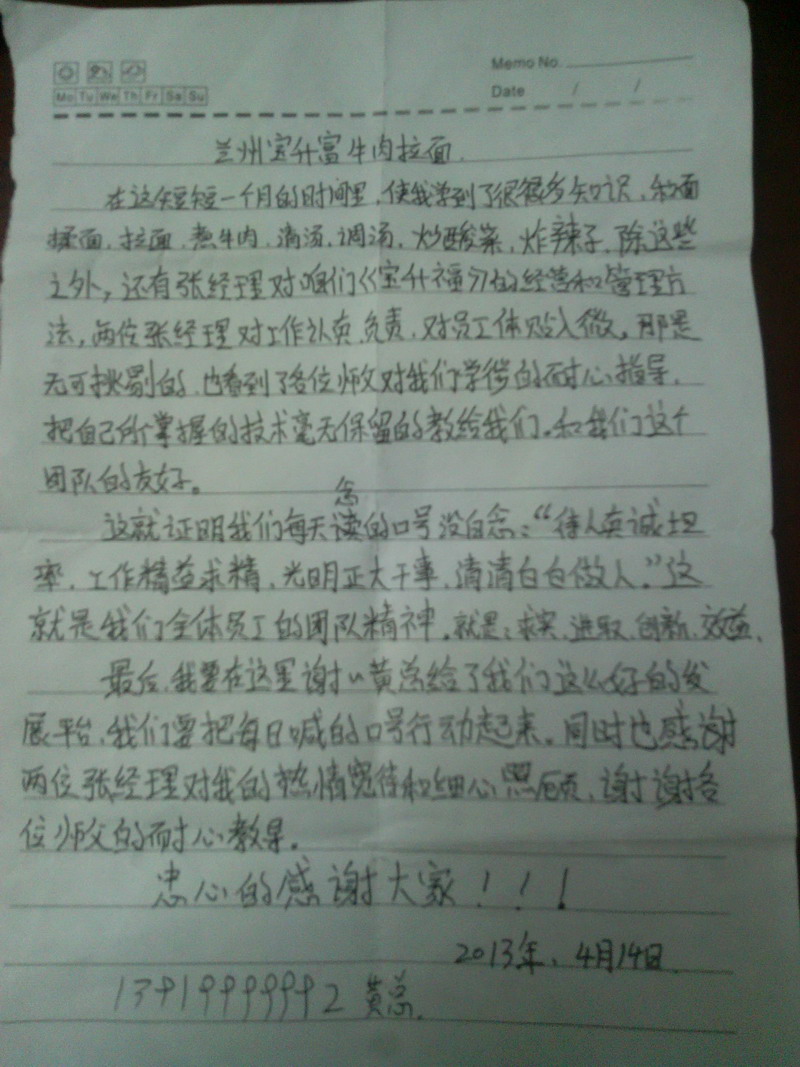 Memo No.
Mo Tu We Th Fr Sa Su
Date / /
兰州宝升富牛肉拉面.
在这短短一个月的时间里,使我学到了很很多知识,和面
揉面,拉面,煮牛肉,清汤,调汤,炒酸菜,炸辣子,除这些
之外,还有张经理对咱们《宝升福》的经营和管理方
法,两位张经理对工作认真负责,对员工体贴入微。那是
无可挑剔的,也看到了各位师父对我们学徒的耐心指导,
把自己所掌握的技术毫无保留的教给我们。和我们这个
团队的友好。
念
这就证明我们每天读的口号没白念:“待人真诚坦
率,工作精益求精,光明正大干事,清清白白做人。”这
就是我们全体员工的团队精神。就是:求实,进取,创新,效益.
最后,我要在这里谢〃黄总给了我们这么好的发
展平台,我们要把每日喊的口号行动起来。同时也感谢
两位张经理对我的热情宽待和细心照顾,谢谢各
位师父的耐心教导。
忠心的感谢大家!!!
2013年,4月14日.
黄总.